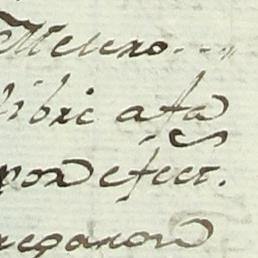 Melero...
libre a fa
por efect.
regaron